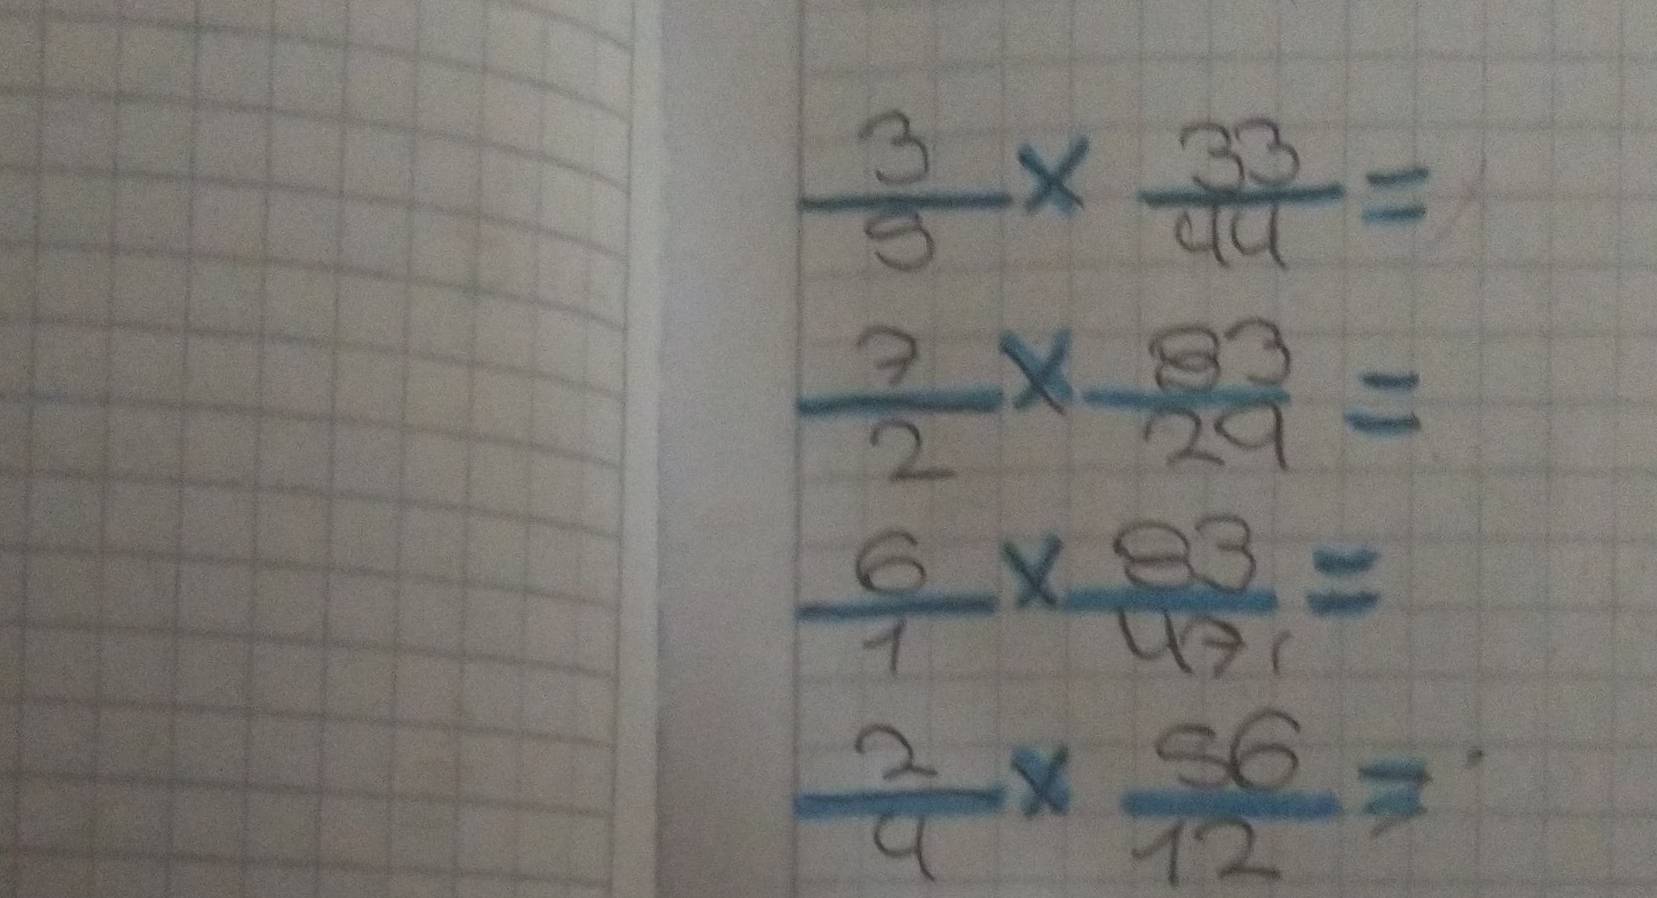 3/5 x 33/44 =
7/2 x 83/29 =
6/1 x 83/47 =
2/9 x 56/12 =